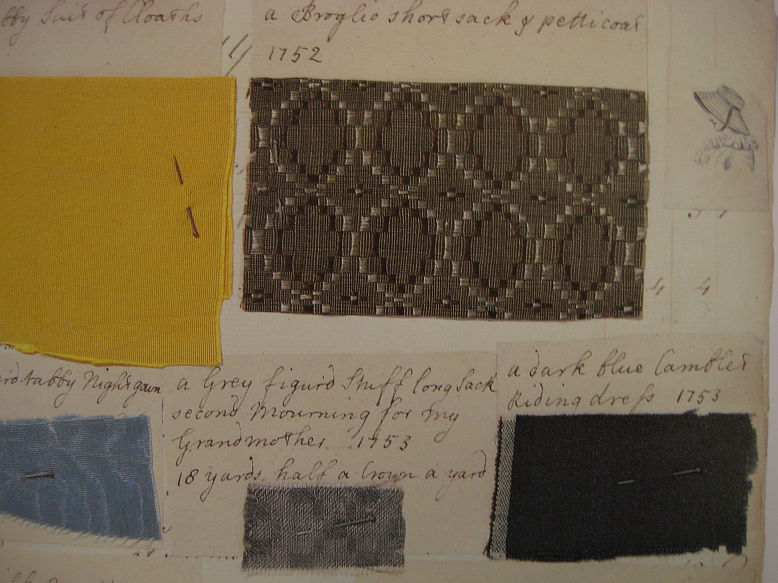 bby Suit of Cloaths
a Broglio short sack & petticoat
1752
4 4
rd tabby Nightgown
a Grey figurd Stuff long sack
second Mourning for my
Grandmother 1753
18 yards half a Crown a yard
a dark blue Camblet
Riding dress 1753